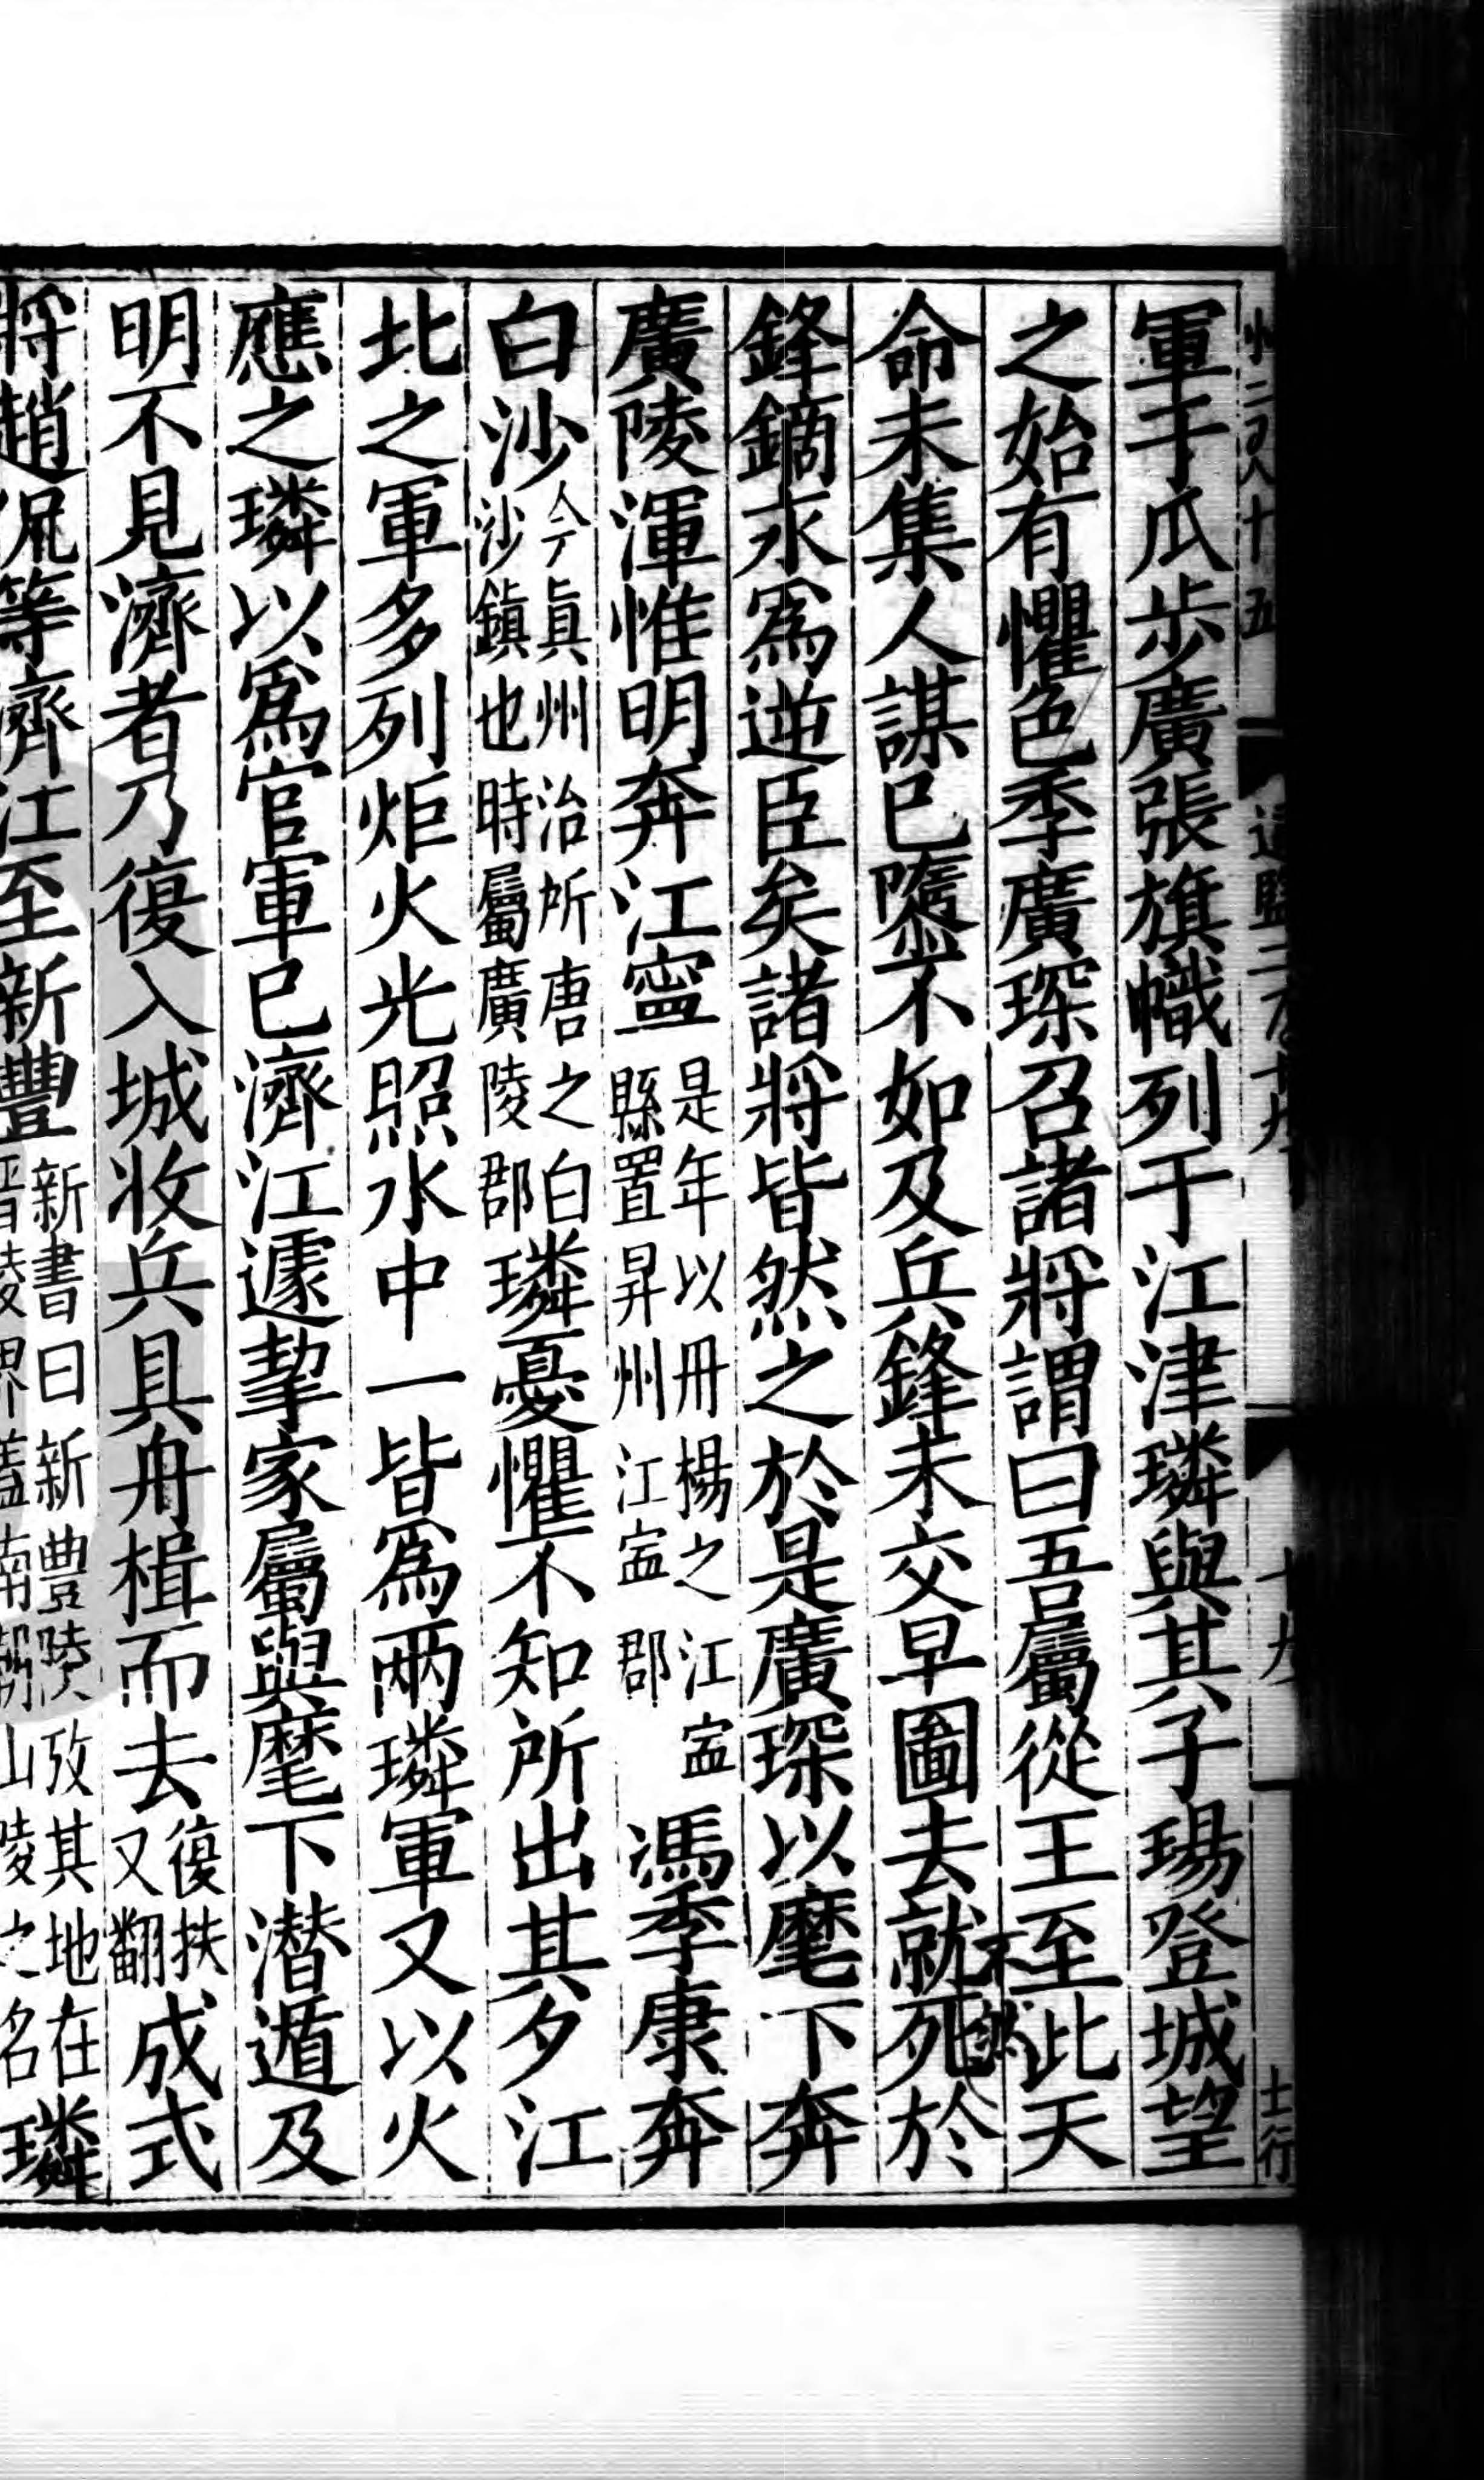 軍于瓜步廣張旗幟列于江津璘與其子瑒登城望
之始有懼色季廣琛召諸將謂曰吾屬從王至此天
命未集人謀已隳不如及兵鋒未交早圖去就不然死於
鋒鏑永爲逆臣矣諸將皆然之於是廣琛以麾下奔
廣陵渾惟明奔江寧是年以丹楊之江寍縣置昇州江寍郡馮季康奔
白沙今眞州治所唐之白沙鎮也時屬廣陵郡璘憂懼不知所出其夕江
北之軍多列炬火光照水中一皆爲兩璘軍又以火
應之璘以爲官軍已濟江遽挈家屬與麾下潛遁及
明不見濟者乃復入城收兵具舟楫而去復扶又翻成式
將趙侃等濟江至新豐新書曰新豐陵攷其地在晉陵界蓋南朝山陵之名璘